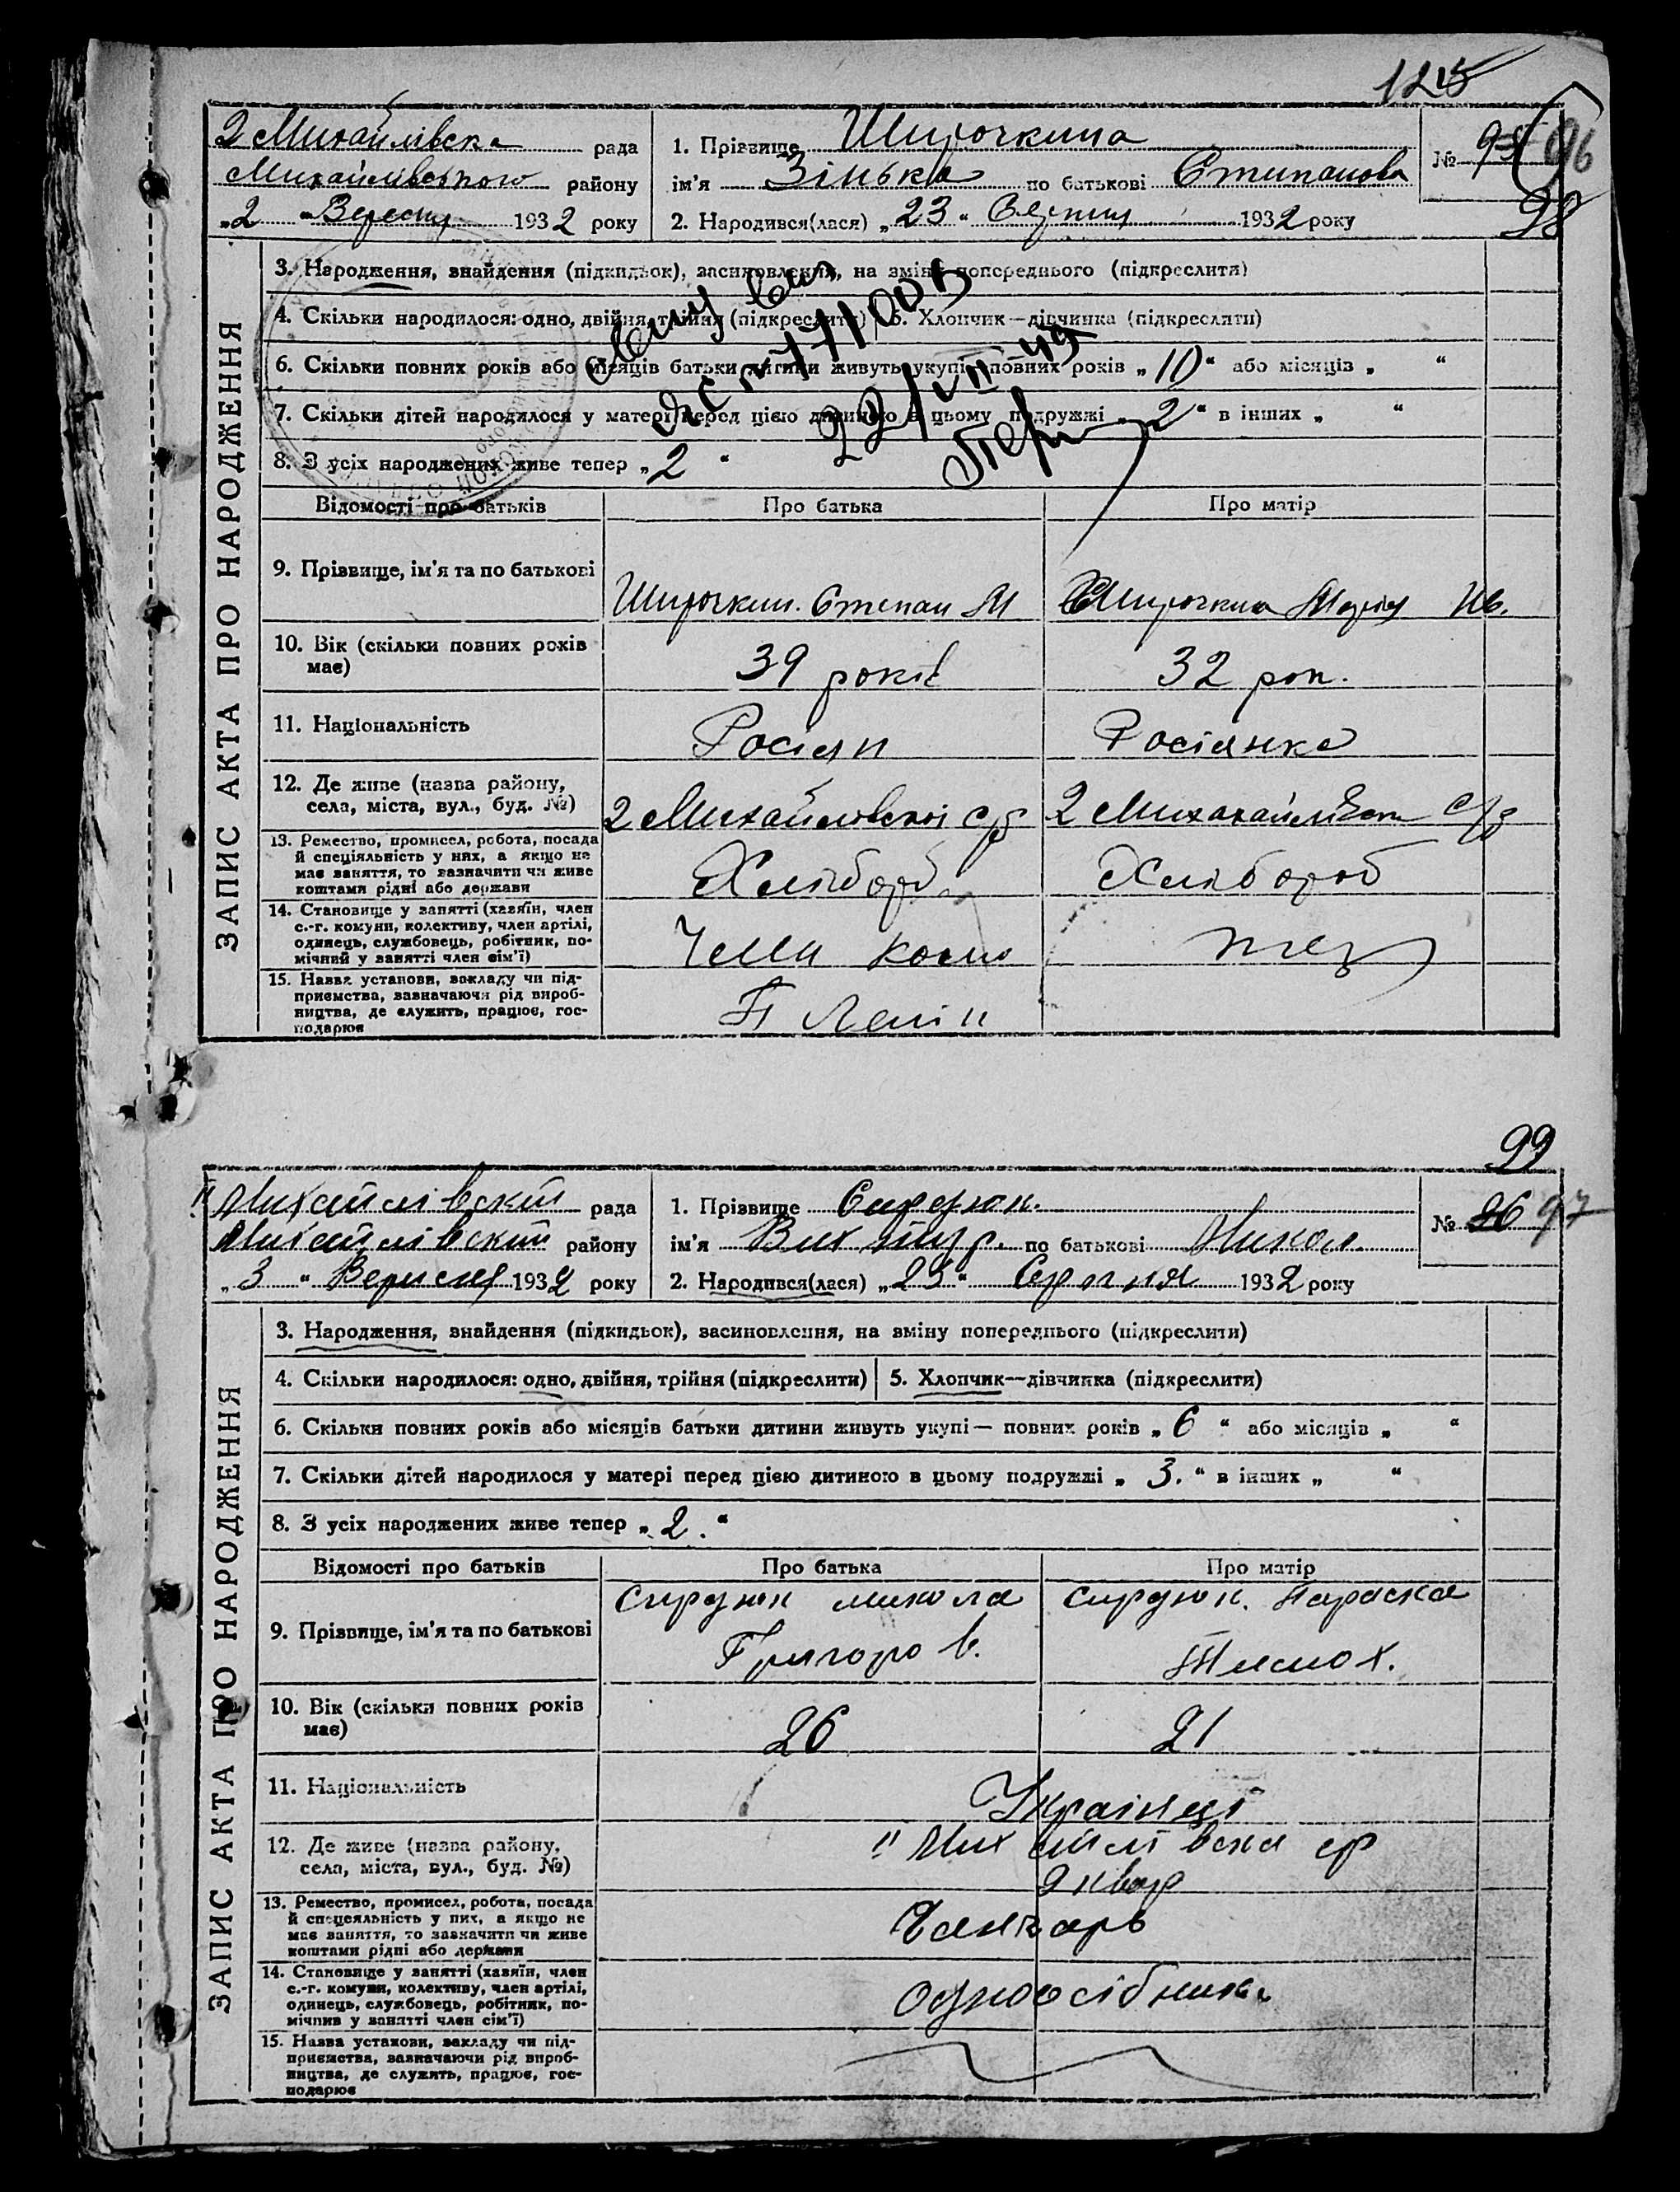 2 Михайлівска рада
Михайлівського району
„2“ Вересня 1932 року
1. Прізвище Широчкина
ім'я Зінька по батькові Степанова
2. Народився(лася) „23“ Серпня 1932 року
№ 96
98
ЗАПИС АКТА ПРО НАРОДЖЕННЯ
3. Народження, знайдення (підкидьок), засиновлення, на зміну попереднього (підкреслити)
4. Скільки народилося: одно, двійня, трійня (підкреслити) 5. Хлопчик—дівчинка (підкреслити)
6. Скільки повних років або місяців батьки дитини живуть укупі— повних років „10“ або місяців „ “
7. Скільки дітей народилося у матері перед цією дитиною в цьому подружжі „2“ в інших „ “
8. З усіх народжених живе тепер „2“
22/VII-49
Відомості про батьків Про батька Про матір
9. Прізвище, ім'я та по батькові
Широчкин. Степан М Широчкина Мария Ив.
10. Вік (скільки повних років
має)
39 років 32 рок.
11. Національність Росіян Росіянка
12. Де живе (назва району,
села, міста, вул., буд. №)
2 Михайловскої с/р 2 Михахайлівск с/р
13. Ремество, промисел, робота, посада
й спеціяльність у них, а якщо не
має заняття, то зазначити чи живе
коштами рідні або держави
Хлібороб Хлібороб
14. Становище у занятті (хазяїн, член
с.-г. комуни, колективу, член артілі,
одинець, службовець, робітник, по-
мічний у занятті член сім'ї)
Член
15. Назва установи, закладу чи під-
приємства, зазначаючи рід вироб-
ництва, де служить, працює, гос-
подарює
Ленін
99
"Михайлівский рада
Михайлівский району
„3“ Вересня 1932 року
1. Прізвище Сирдюк.
ім'я Вихтур. по батькові Микол.
2. Народився(лася) „23“ Серпня 1932 року
№ 97
ЗАПИС АКТА ПРО НАРОДЖЕННЯ
3. Народження, знайдення (підкидьок), засиновлення, на зміну попереднього (підкреслити)
4. Скільки народилося: одно, двійня, трійня (підкреслити) 5. Хлопчик—дівчинка (підкреслити)
6. Скільки повних років або місяців батьки дитини живуть укупі— повних років „6“ або місяців „ “
7. Скільки дітей народилося у матері перед цією дитиною в цьому подружжі „3.“ в інших „ “
8. З усіх народжених живе тепер „2.“
Відомості про батьків Про батька Про матір
Сирдюк микола Сирдюк. Параска
9. Прізвище, ім'я та по батькові
Григоров. Тимох.
10. Вік (скільки повних років
має)
26 21
11. Національність Українці
12. Де живе (назва району,
села, міста, вул., буд. №)
"Михайлівска ср
2 квар
13. Ремество, промисел, робота, посада
й спецеяльність у них, а якщо не
має заняття, то зазначити чи живе
коштами рідні або держави
14. Становище у занятті (хазяїн, член
с.-г. комуни, колективу, член артілі,
одинець, службовець, робітник, по-
мічнив у занятті член сім'ї)
одноосібник.
15. Назва установи, закладу чи під-
приємства, зазначаючи рід вироб-
ництва, де служить, працює, гос-
подарює